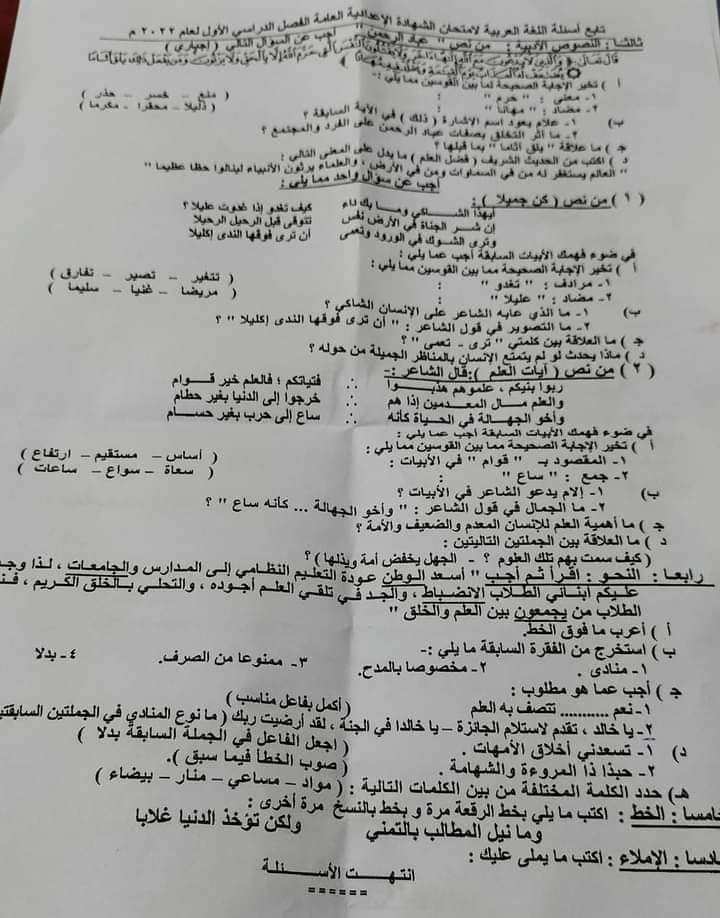 تابع أسئلة اللغة العربية لامتحان الشهادة الإعدادية العامة الفصل الدراسي الأول لعام ٢٠٢٢ م
ثالثا : النصوص الأدبية : من نص " عباد الرحمن " أجب عن السؤال التالي ( إجباري )
قال تعالى : ﴿ والذين لا يدعون مع الله إلها آخر ولا يقتلون النفس التي حرم الله إلا بالحق ولا يزنون ومن يفعل ذلك يلق أثاما
يضاعف له العذاب يوم القيامة ويخلد فيه مهانا ﴾
أ ) تخير الإجابة الصحيحة لما بين القوسين مما يلي :-
١- معنى : " حرم " : ( منع – خسر – حذر )
٢- مضاد : " مهانا " : ( ذليلا – محقرا – مكرما )
ب) ١- علام يعود اسم الإشارة ( ذلك ) في الآية السابقة ؟
٢- ما أثر التخلق بصفات عباد الرحمن على الفرد والمجتمع ؟
ج ) ما علاقة " يلق أثاما " بما قبلها ؟
د ) اكتب من الحديث الشريف ( فضل العلم ) ما يدل على المعنى التالي :
" العالم يستغفر له من في السماوات ومن في الأرض ، والعلماء يرثون الأنبياء لينالوا حظا عظيما "
أجب عن سؤال واحد مما يلي :
( ١ ) من نص ( كن جميلا ) :
أيهذا الشـــاكي ومـا بك داء كيف تغدو إذا غدوت عليلا ؟
إن شـــر الجناة في الأرض نفس تتوقى قبل الرحيل الرحيلا
وترى الشوك في الورود وتعمى أن ترى فوقها الندى إكليلا
في ضوء فهمك الأبيات السابقة أجب عما يلي :
أ ) تخير الإجابة الصحيحة مما بين القوسين مما يلي :
١- مرادف : " تغدو " : ( تتغير – تصير – تفارق )
٢- مضاد : " عليلا " : ( مريضا – غنيا – سليما )
ب) ١- ما الذي عابه الشاعر على الإنسان الشاكي ؟
٢- ما التصوير في قول الشاعر : " أن ترى فوقها الندى إكليلا " ؟
ج ) ما العلاقة بين كلمتي " ترى - تعمى " ؟
د ) ماذا يحدث لو لم يتمتع الإنسان بالمناظر الجميلة من حوله ؟
( ٢ ) من نص ( آيات العلم ) :قال الشاعر :-
ربوا بنيكم ، علموهم هذبـــوا ∴ فتياتكم ؛ فالعلم خير قـــوام
والعلم مـــال المعـــدمين إذا هم ∴ خرجوا إلى الدنيا بغير حطام
وأخو الجهـالة في الحياة كأنه ∴ ساع إلى حرب بغير حســـام
في ضوء فهمك الأبيات السابقة أجب عما يلي :
أ ) تخير الإجابة الصحيحة مما بين القوسين مما يلي :
١- المقصود بـ " قوام " في الأبيات : ( أساس – مستقيم – ارتفاع )
٢- جمع : " ساع " : ( سعاة – سواع – ساعات )
ب) ١- إلام يدعو الشاعر في الأبيات ؟
٢- ما الجمال في قول الشاعر : " وأخو الجهالة ... كأنه ساع " ؟
ج ) ما أهمية العلم للإنسان المعدم والضعيف والأمة ؟
د ) ما العلاقة بين الجملتين التاليتين :
( كيف سمت بهم تلك العلوم ؟ - الجهل يخفض أمة ويذلها ) ؟
رابعـا : النحو : اقرأ ثم أجب " أسعد الوطن عودة التعليم النظامي إلى المدارس والجامعات ، لذا
عليكم أبنائي الطلاب الانضباط ، والجد في تلقي العلم أجوده ، والتحلي بالخلق الكريم ،
الطلاب من يجمعون بين العلم والخلق "
أ ) أعرب ما فوق الخط.
ب ) استخرج من الفقرة السابقة ما يلي :-
١- منادى . ٢- مخصوصا بالمدح. ٣- ممنوعا من الصرف. ٤- بدلا
ج ) أجب عما هو مطلوب :
١- نعم .......... تتصف به العلم ( أكمل بفاعل مناسب )
٢- يا خالد ، تقدم لاستلام الجائزة – يا خالدا في الجنة ، لقد أرضيت ربك ( ما نوع المنادى في الجملتين
د) ١- تسعدني أخلاق الأمهات . ( اجعل الفاعل في الجملة السابقة بدلا )
٢- حبذا ذا المروءة والشهامة . ( صوب الخطأ فيما سبق ).
هـ) حدد الكلمة المختلفة من بين الكلمات التالية : ( مواد – مساعي – منار – بيضاء )
خامسا : الخط : اكتب ما يلي بخط الرقعة مرة و بخط بالنسخ مرة أخرى :
وما نيل المطالب بالتمني ولكن تؤخذ الدنيا غلابا
سادسا : الإملاء : اكتب ما يملى عليك :
انتهـت الأسـئـلة
======